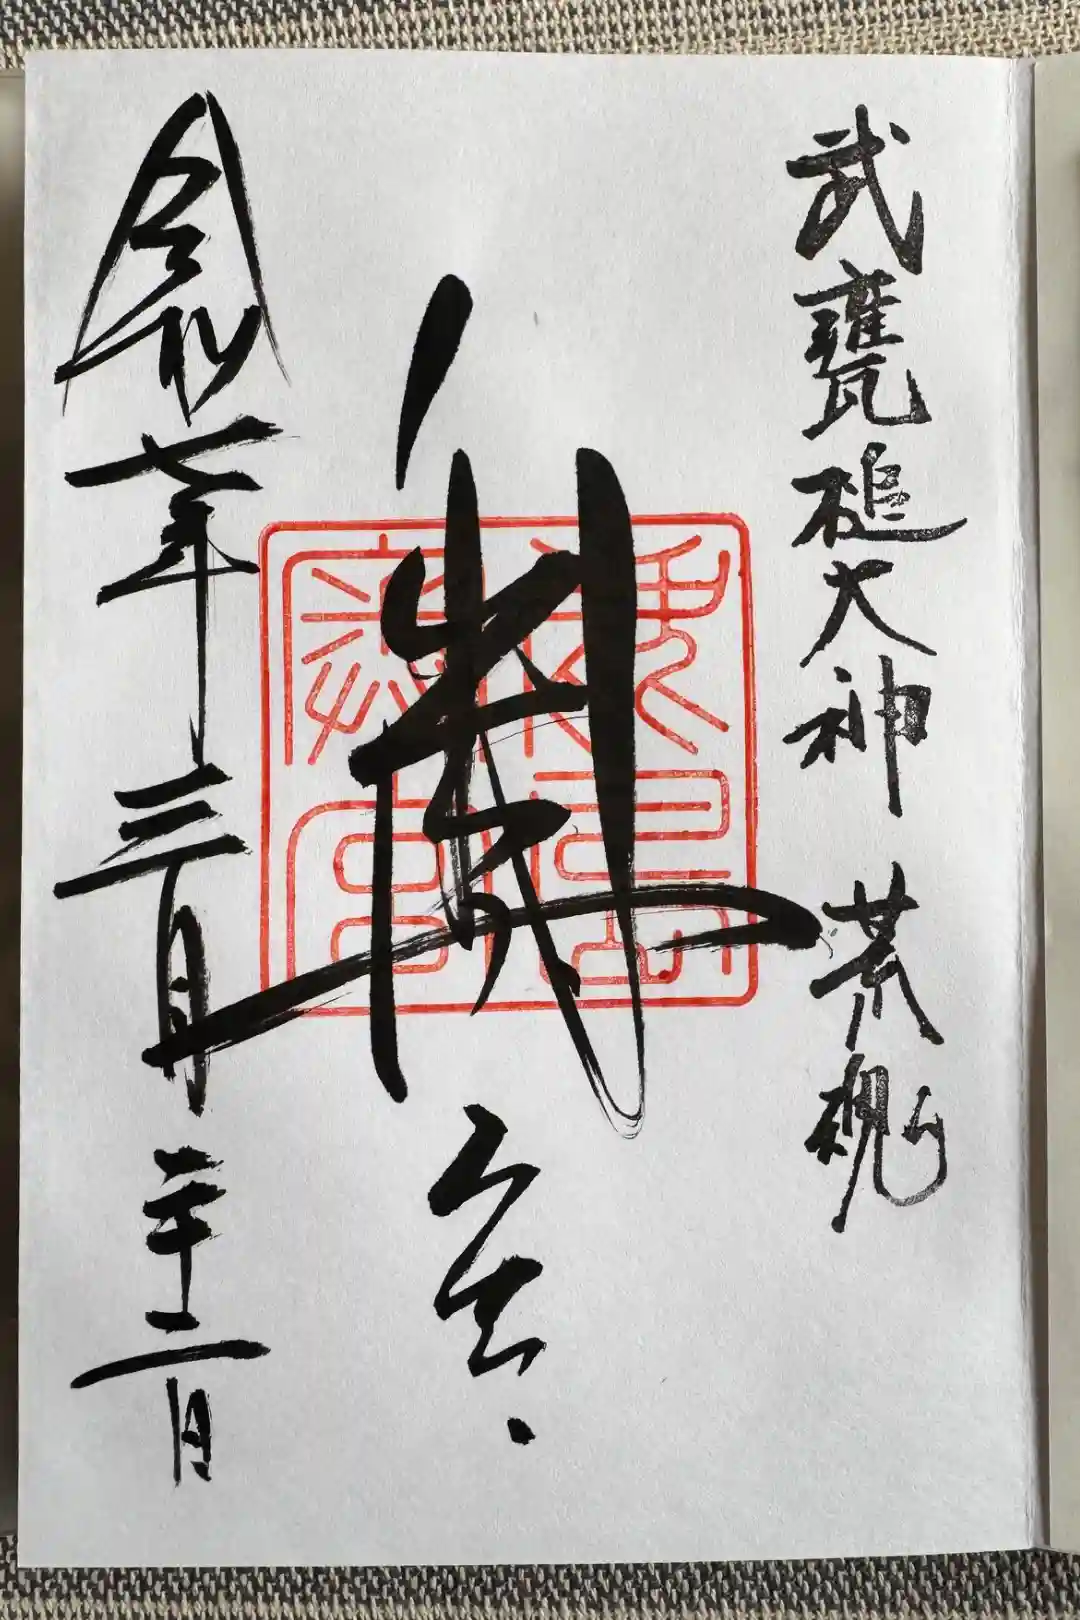 武甕槌大神 荒魂
奥宮
令和七年三月二十二日